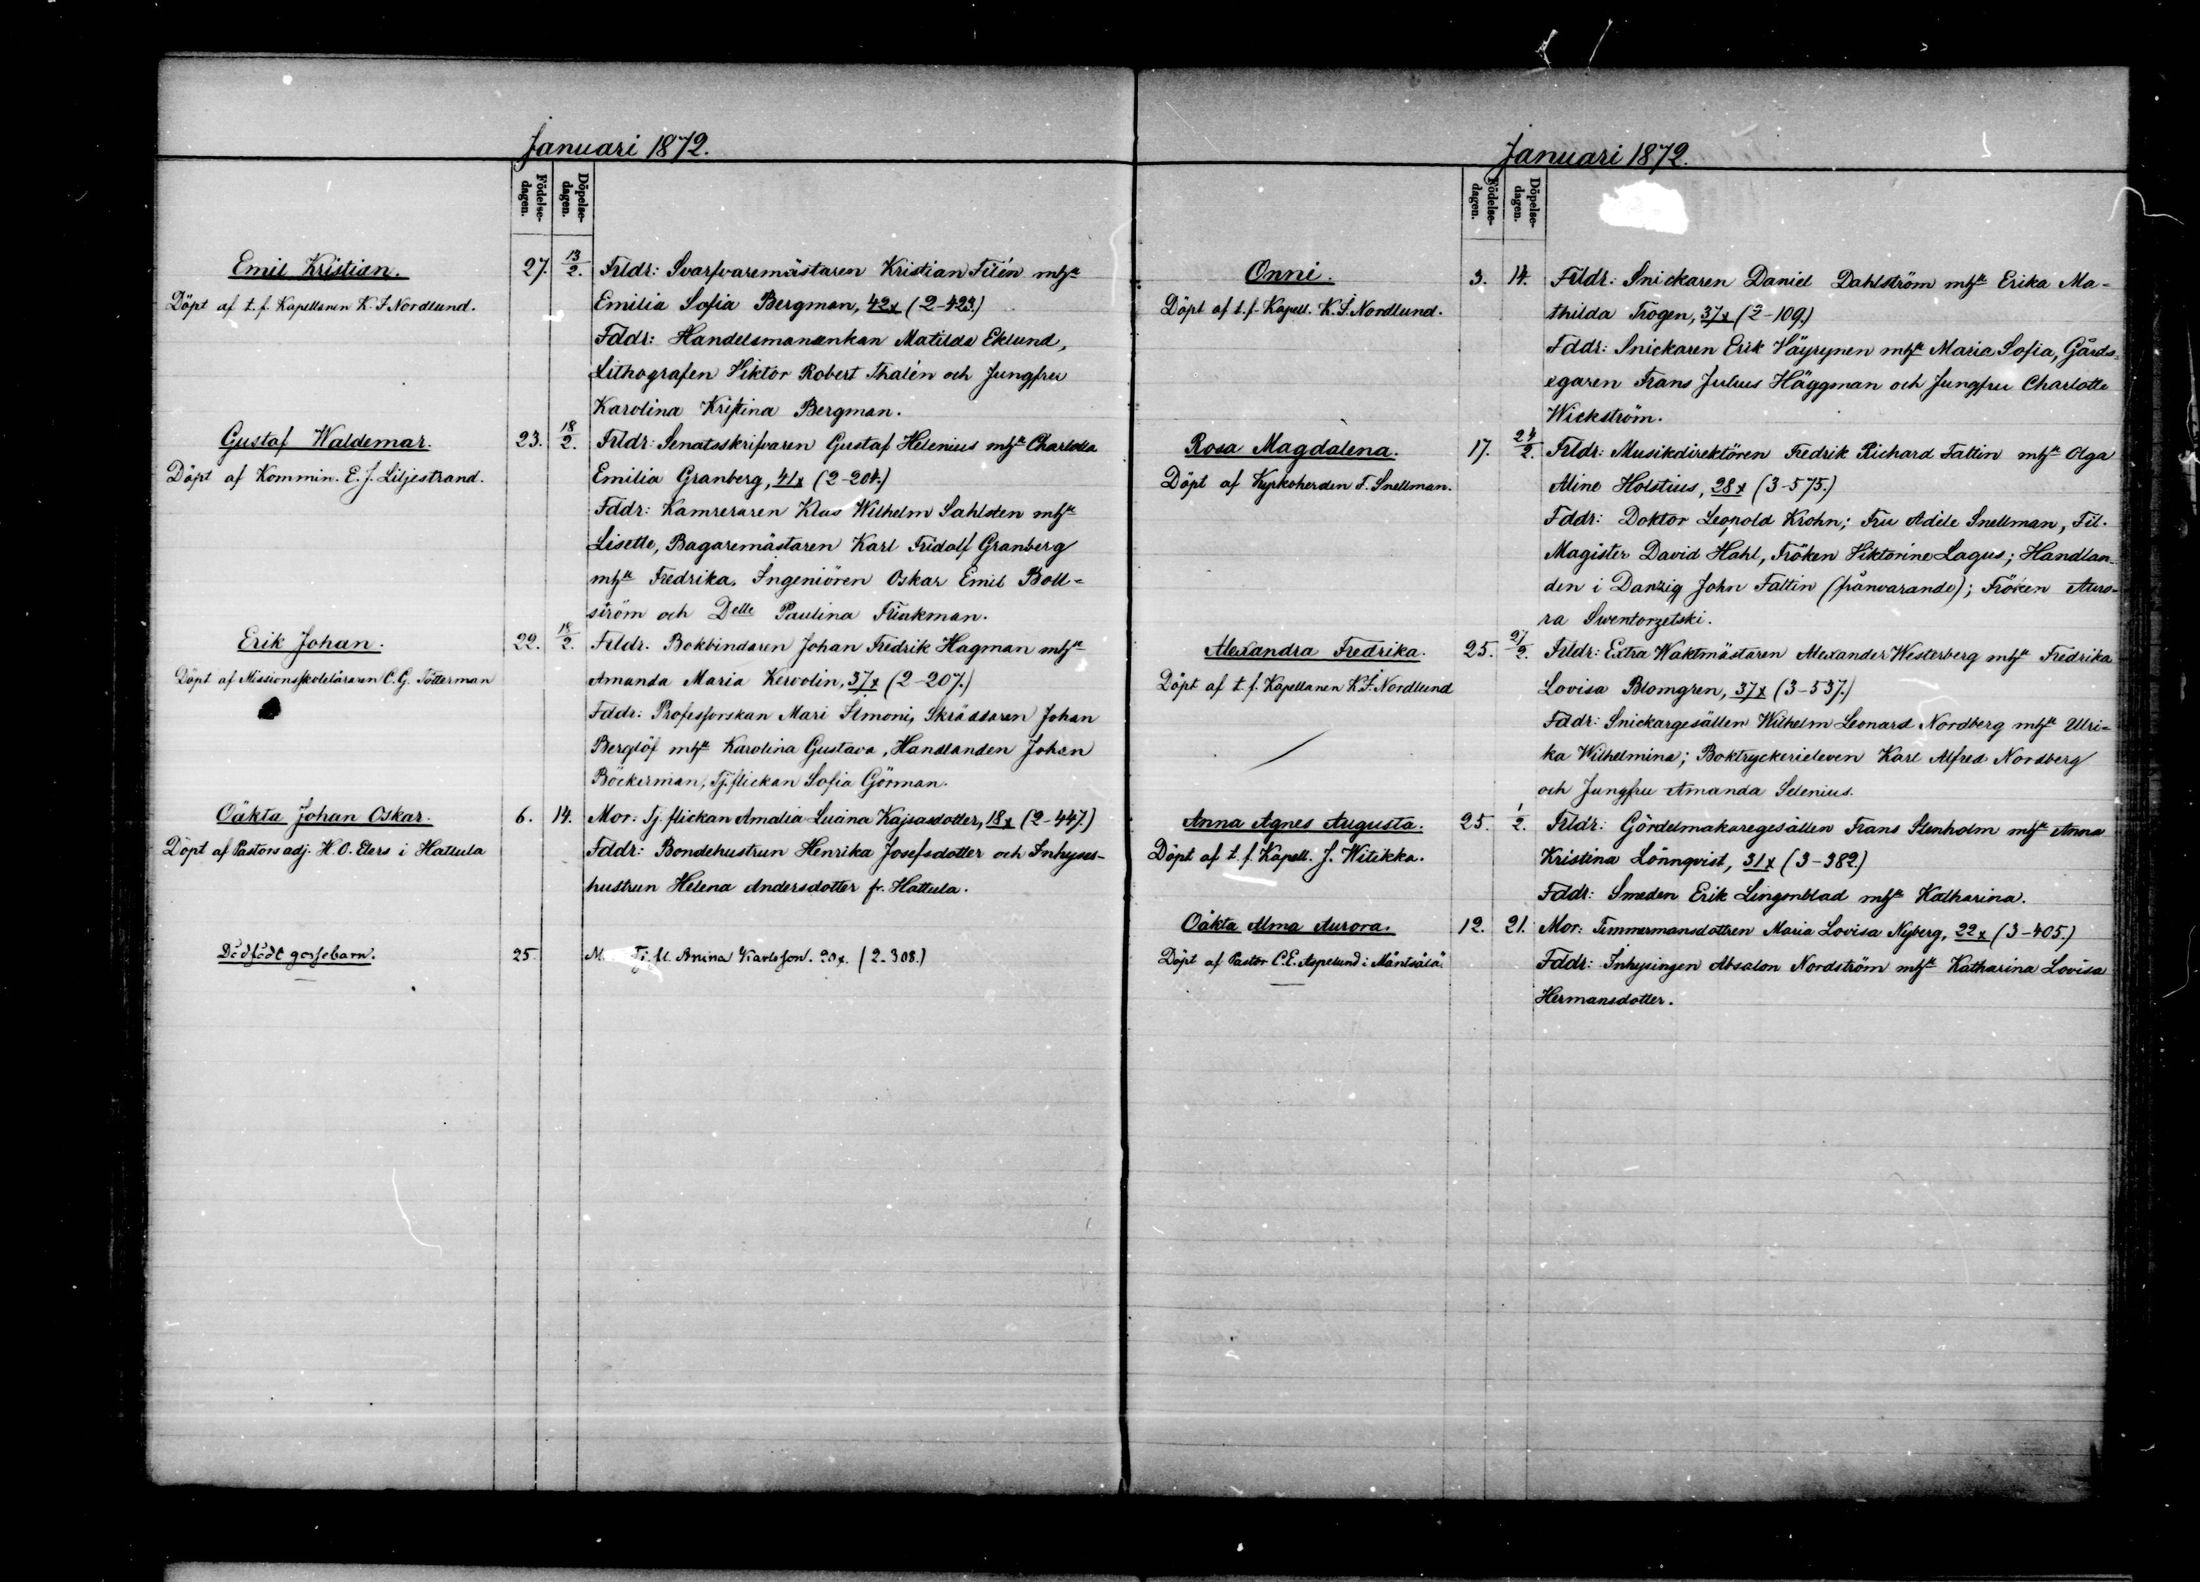 Januari 1872.
Födelse-
dagen.
Döpelse-
dagen.
Emil Kristian.
Döpt af t. f. Kapellanen K. F. Nordlund.
27.
13/2.
Frldr: Svarfvaremästaren Kristian Filén mhst
Emilia Sofia Bergman, 42x (2-423.)
Fddr: Handelsmansenkan Matilda Eklund,
Lithografen Viktor Robert Thalén och Jungfru
Karolina Kristina Bergman.
Gustaf Waldemar.
Döpt af Kommin. E. J. Liljestrand.
23.
18/2.
Frldr: Senatsskrifvaren Gustaf Helenius mhst Charlotta
Emilia Granberg, 41x (2-204.)
Fddr: Kamreraren Klas Wilhelm Sahlsten mhst
Lisette, Bagaremästaren Karl Fridolf Granberg
mhst Fredrika, Ingeniören Oskar Emil Boll-
ström och Delle Paulina Frinkman.
Erik Johan.
Döpt af Missionsskoleläraren C. G. Tötterman
22.
18/2.
Frldr. Bokbindaren Johan Fredrik Hagman mhst
Amanda Maria Kervolin, 37x (2-207.)
Fddr: Professorskan Mari Almoni, Skräddaren Johan
Berglöf mhst Karolina Gustava, Handlanden Johan
Böckerman, Tj.flickan Sofia Görman.
Oäkta Johan Oskar.
Döpt af Pastorsadj. H. O. Elers i Hattula
6.
14.
Mor: Tj. flickan Amalia Lucina Kajsasdotter, 18x (2-447.)
Fddr: Bondehustrun Henrika Josefsdotter och Inhyses-
hustrun Helena Andersdotter fr. Hattula.
Dödfödt gossebarn.
25.
M. Tj. fl. Anina Karlsson. 20x. (2-308.)
Januari 1872.
Födelse-
dagen.
Döpelse-
dagen.
Onni.
Döpt af t. f. Kapell. K. F. Nordlund.
3.
14.
Frldr: Snickaren Daniel Dahlström mhst Erika Ma-
thilda Trogen, 37x (2-109.)
Fddr: Snickaren Erik Väyrynen mhst Maria Sofia, Gårds-
egaren Frans Julius Häggman och Jungfru Charlotte
Wickström.
Rosa Magdalena.
Döpt af Kyrkoherden F. Snellman.
17.
24/2.
Frldr: Musikdirektören Fredrik Richard Faltin mhst Olga
Aline Holstius, 28x (3-575.)
Fddr: Doktor Leopold Krohn; Fru Adéle Snellman, Fil.
Magister David Hahl, Fröken Viktorine Lagus; Handlan-
den i Danzig John Faltin (frånvarande); Fröken Auro-
ra Swentorzetski.
Alexandra Fredrika.
Döpt af t. f. Kapellanen K. F. Nordlund
25.
27/2.
Frldr: Extra Waktmästaren Alexander Westerberg mhst Fredrika
Lovisa Blomgren, 37x (3-537.)
Fddr: Snickargesällen Wilhelm Leonard Nordberg mhst Ulri-
ka Wilhelmina; Boktryckerieleven Karl Alfred Nordberg
och Jungfru Amanda Selenius.
Anna Agnes Augusta.
Döpt af t. f. Kapell. J. Witikka.
25.
1/2.
Frldr: Gördelmakaregesällen Frans Stenholm mhst Anna
Kristina Lönnqvist, 31x (3-382.)
Fddr: Smeden Erik Lingonblad mhst Katharina.
Oäkta Alma Aurora.
Döpt af Pastor C. E. Aspelund i Mäntsälä.
12.
21.
Mor: Timmermansdottren Maria Lovisa Nyberg, 22x (3-405.)
Fddr: Inhysingen Absalon Nordström mhst Katharina Lovisa
Hermansdotter.